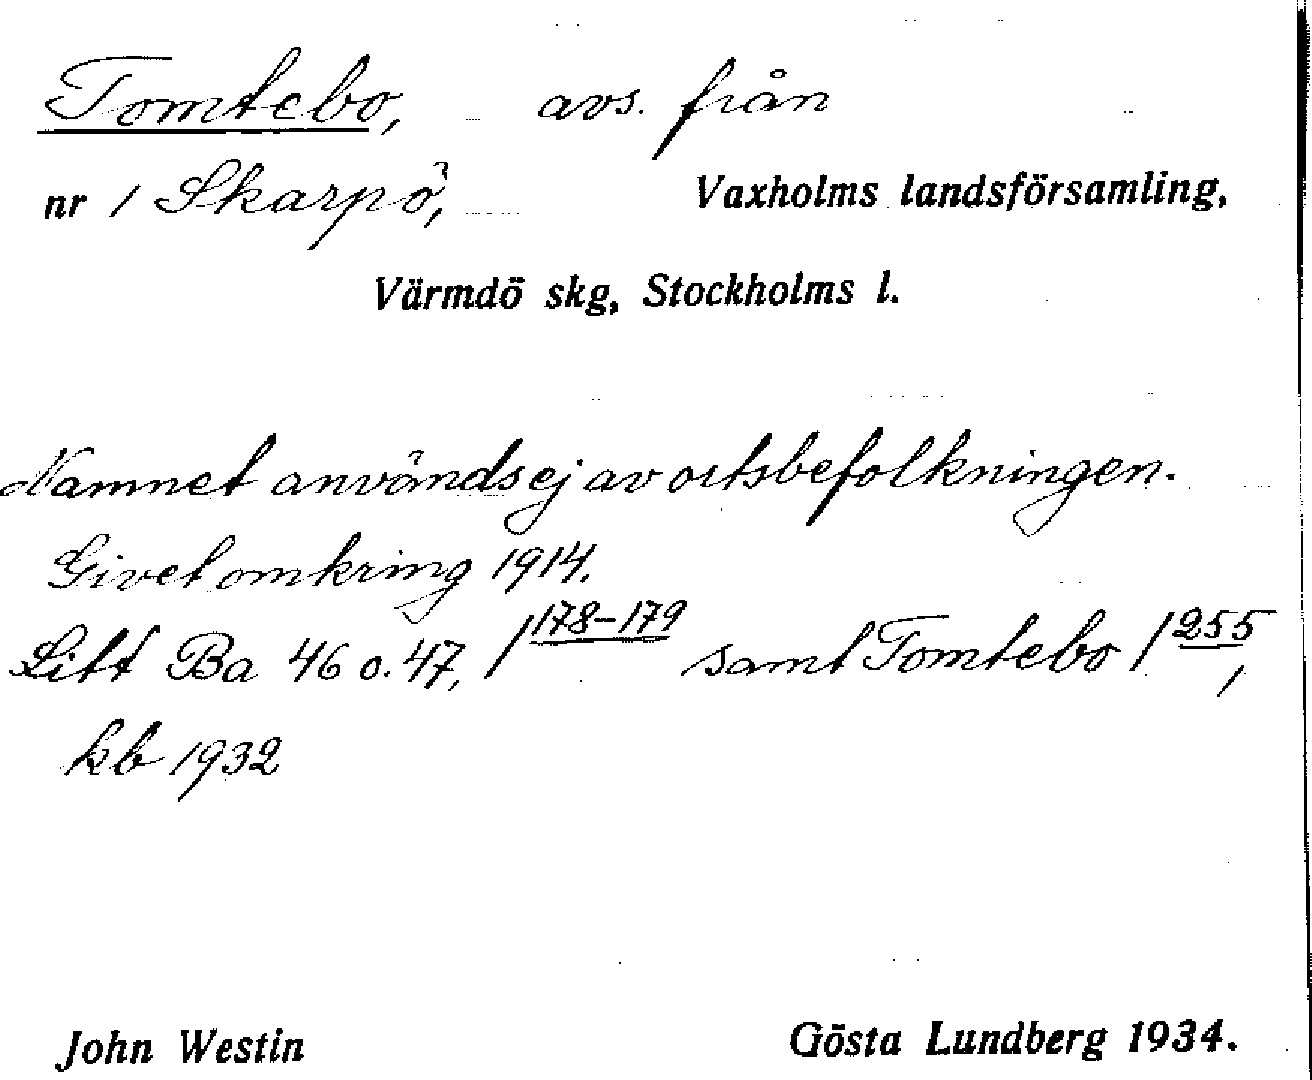 Tomtebo, avs. från
nr 1 Skarpö, Vaxholms landsförsamling,
Värmdö skg, Stockholms l.
Namnet används ej av ortsbefolkningen.
Givet omkring 1914.
Litt Ba 46 o. 47, /178-179 samt Tomtebo /255,
kb 1932
John Westin Gösta Lundberg 1934.